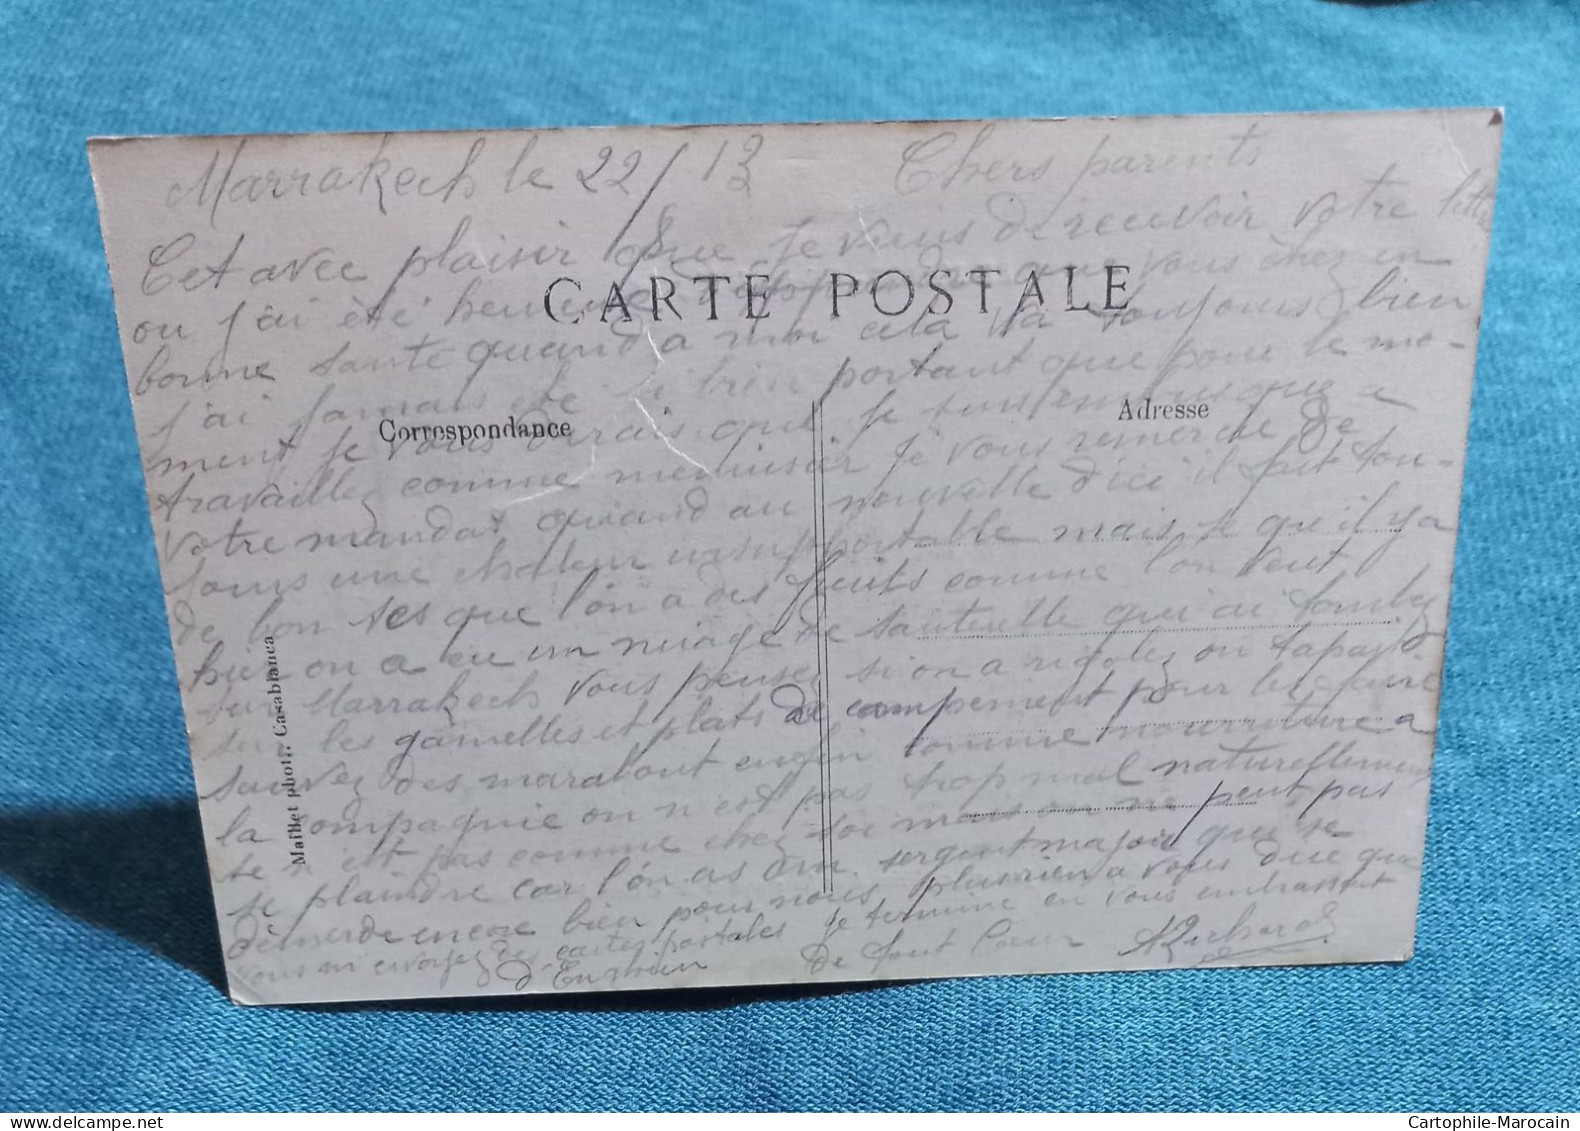 Marrakech le 22/13 Chers parents
Cet avec plaisir que je viens de recevoir votre lettre
CARTE POSTALE
ou j'ai été heureux d'apprendre que vous êtez en
bonne santé quand a moi cela va toujours bien
j'ai jamais été si bien portant que pour le mo-
Correspondance
Adresse
ment je vous dirais que je suis que a
travaillez comme menuisier je vous remercie de
votre mandat quand au nouvelle d'ici il fait tou-
jours une chaleur insupportable mais se qu'il y a
de bon ses que l'on a des fruits comme l'on veut
hier on a eu un nuage de sauterelle qui ai tombez
sur Marrakech vous pensez si on a rigolez on tapait
sur les gamelles et plats de campement pour les faire
sauvez des marabout enfin comme nourriture a
la compagnie on n'est pas trop mal naturellement
se n'est pas comme chez soi mais on ne peut pas
se plaindre car l'on as un sergent major que se
démerde encore bien pour nous plus rien a vous dire que
vous m'envoyez des cartes postales je termine en vous embrassant
d'Enghien de tout Coeur Richard
Maillet phot., Casablanca
Cartophile-Marocain